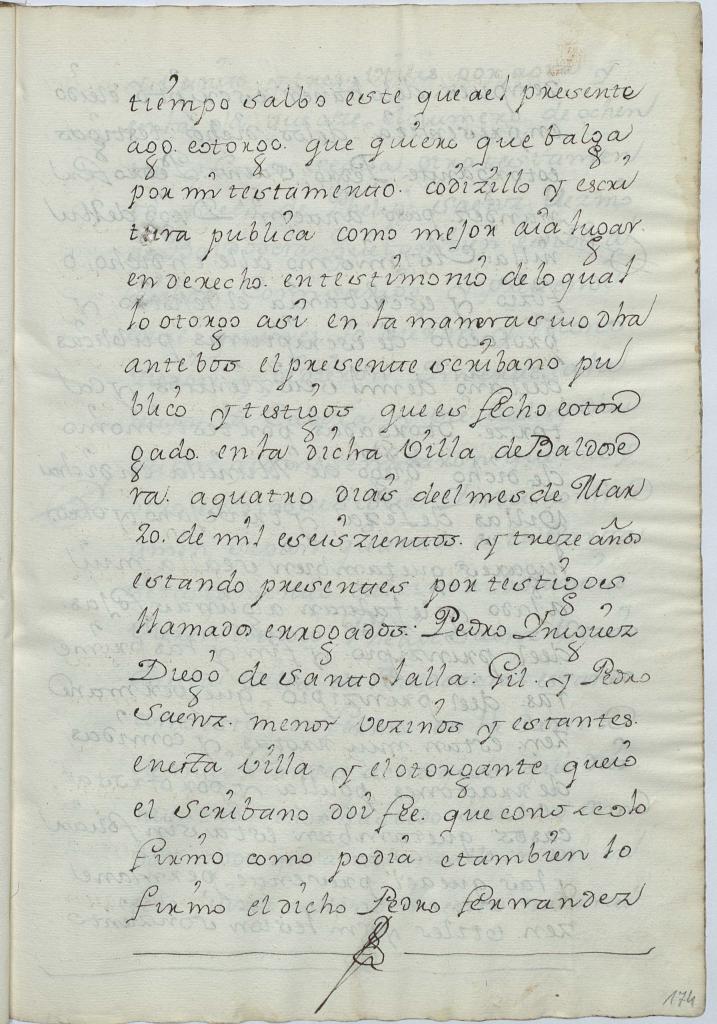 tiempo salbo este que ael presente
ago. eotorgo. que quiero que balga
por mi testamentto. codizillo y escri
tura publica como mejor aia lugar.
en derecho. en testimonio de lo qual
lo otorgo asi en la manera suso dha
ante bos el presentte scribano pu
blico y testigos que es fecho eotor
gado. en la dicha Villa de Baldose
ra. a quatro dias de el mes de Mar
zo. de mil e seis zienttos. y treze años
estando presenttes por testigos
llamados e rrogados: Pedro Yniguez
Diego de Santto lalla. Gil. y Pedro
Saenz. menor vezinos y estantes.
en esta villa y el otorgante que io
el scribano doi fee. que conozco lo
firmo como podia e tambien lo
firmo el dicho Pedro Fernandez
174